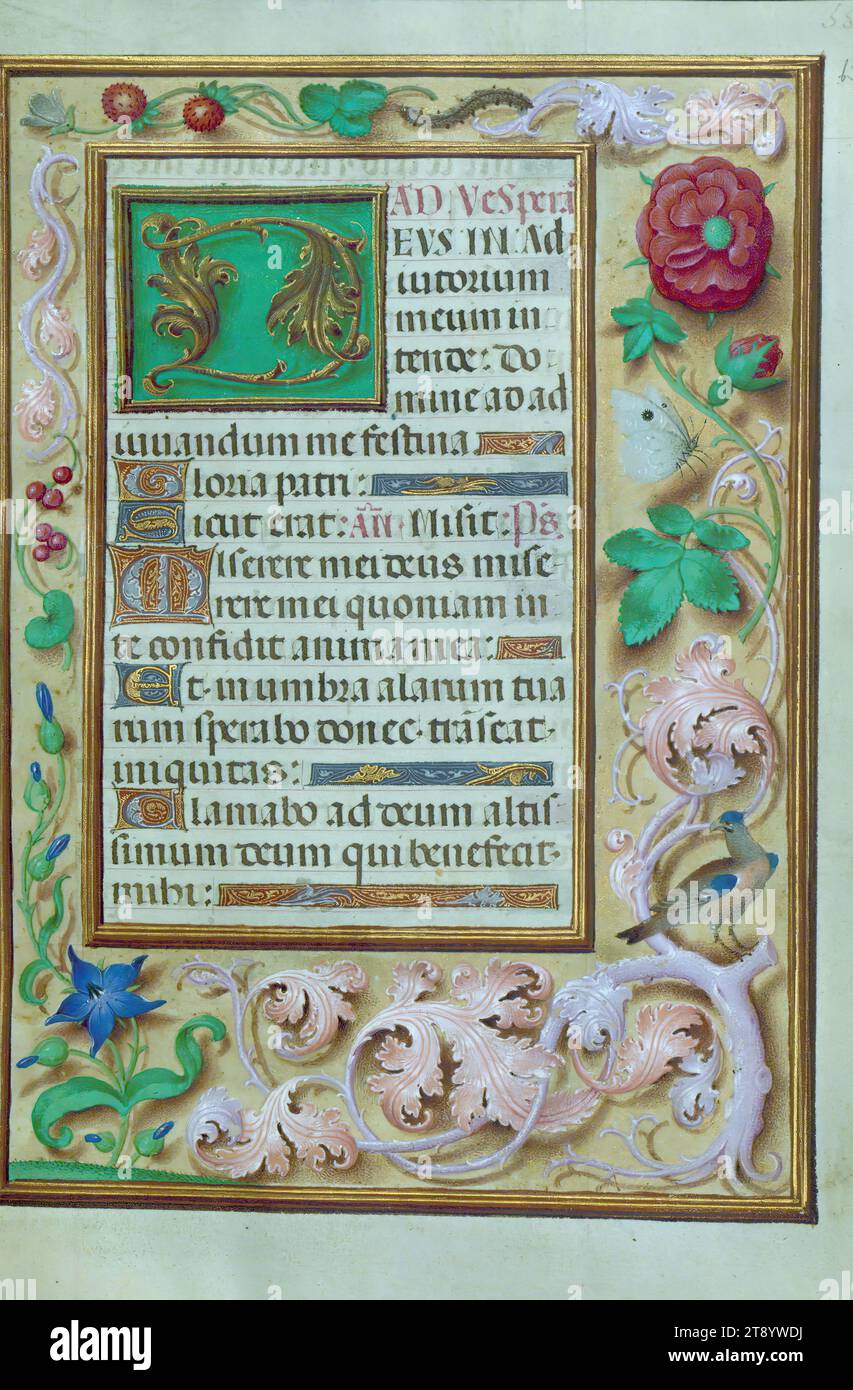 AD VeSperā
DEVS IN Ad
iutorium
meum in
tende: Do
mine ad ad
iuuandum me festina
Gloria patri:
Sicut erat: Añ. Misit. Ps.
Miserere mei deus mise
rere mei quoniam in
te confidit anima mea:
Et in umbra alarum tua
rum sperabo donec trāseat
iniquitas:
Clamabo ad deum altis
simum deum qui benefecit
mihi:
alamy
Image ID: 2T8YWDJ
www.alamy.com